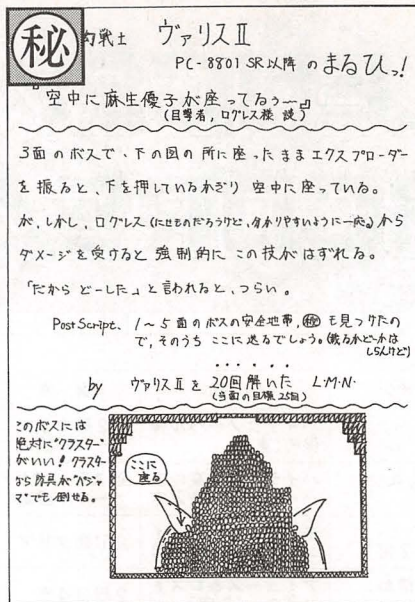 ㊙
幻戦士 ヴァリスⅡ
PC-8801SR以降 の まるひっ!
『空中に麻生優子が座ってるぅ〜』
(目撃者,ログレス様 談)
3面のボスで、下の図の所に座ったままエクスプローダー
を振ると、下を押しているかぎり 空中に座っている。
が、しかし、ログレス(にせものだろうけど、分かりやすいように一応)から
ダメージを受けると 強制的に この技がはずれる。
「だから どーした」と言われると、つらい。
Post Script、 1〜5面のボスの安全地帯,㊙も見つけたの
で、そのうち ここに送るでしょう。(載るかどーかは
しらんけど)
by ヴァリスⅡを 20回解いた L・M・N・
(当面の目標 25回)
このボスには
絶対に"クラスター"
がいい! クラスター
なら 防具が"パジャ
マ"でも倒せる。
ここに
座る